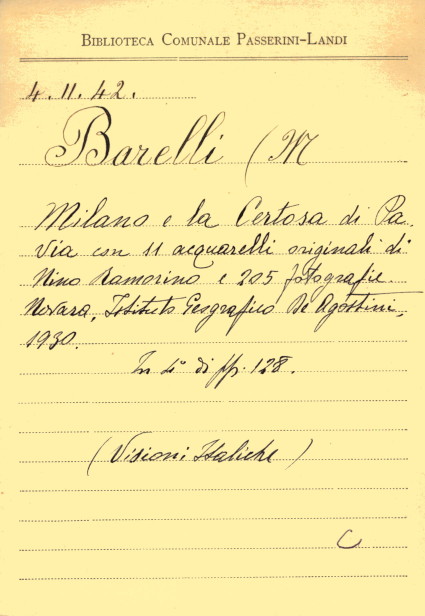 BIBLIOTECA COMUNALE PASSERINI-LANDI
4.11.42.
Barelli (M
Milano e la Certosa di Pa-
via con 11 acquarelli originali di
Nino Ramorino e 205 fotografie.
Novara, Istituto Geografico De Agostini,
1930.
In 4° di pp. 128.
(Visioni Italiche)
C